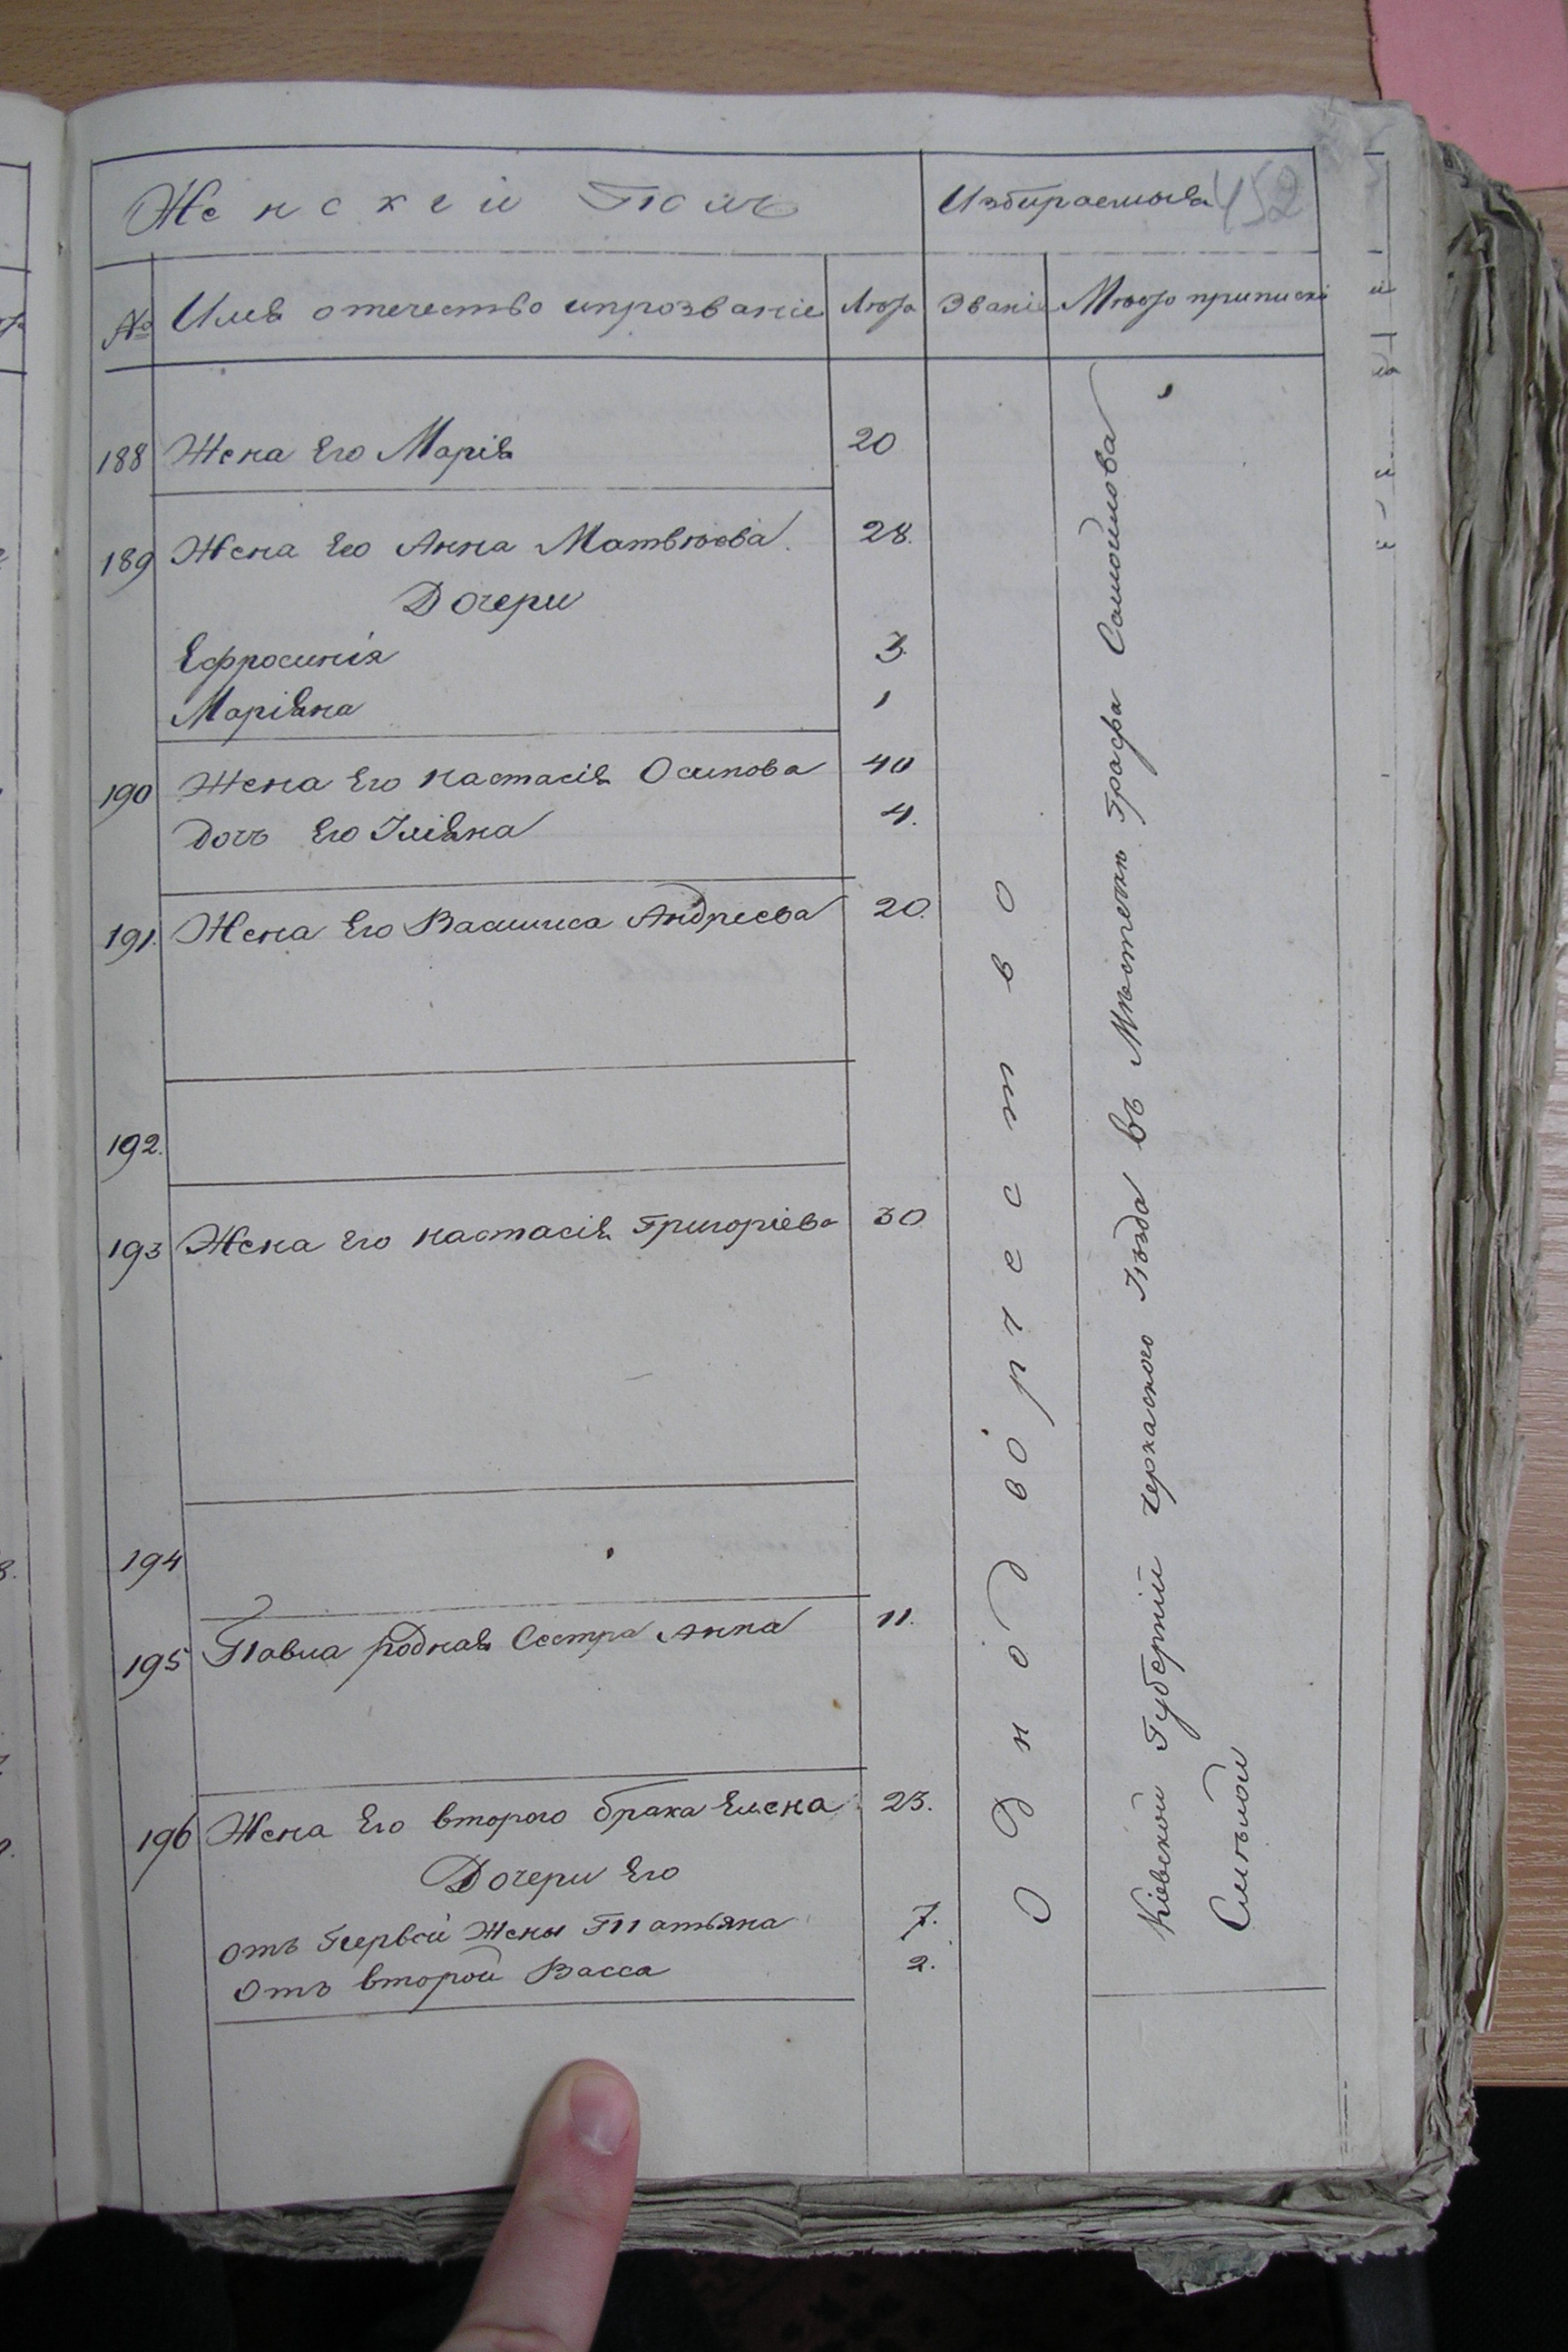 Женскій Полъ
Избираемыя 452
№ Имя отечество ипрозваніе Лѣта Званіе Мѣсто приписки
188 Жена Его Марія 20
189 Жена Его Анна Матвѣева 28.
Дочери
Ефросинія 3.
Маріяна 1
190 Жена Его Настасія Осипова 40
Дочь Его Уліяна 4.
191. Жена Его Василиса Андреева 20.
192.
193 Жена Его Настасія Григоріева 30
194
195 Павла родная Сестра Анна 11.
196 Жена Его второго брака Елена 23.
Дочери Его
Отъ Первой Жены Татьяна 7.
Отъ второй Васса 2.
Однодворчество
Кіевской Губерніи Черкаского Уѣзда Въ Мѣстечкѣ Графа Самойлова
Смѣлой